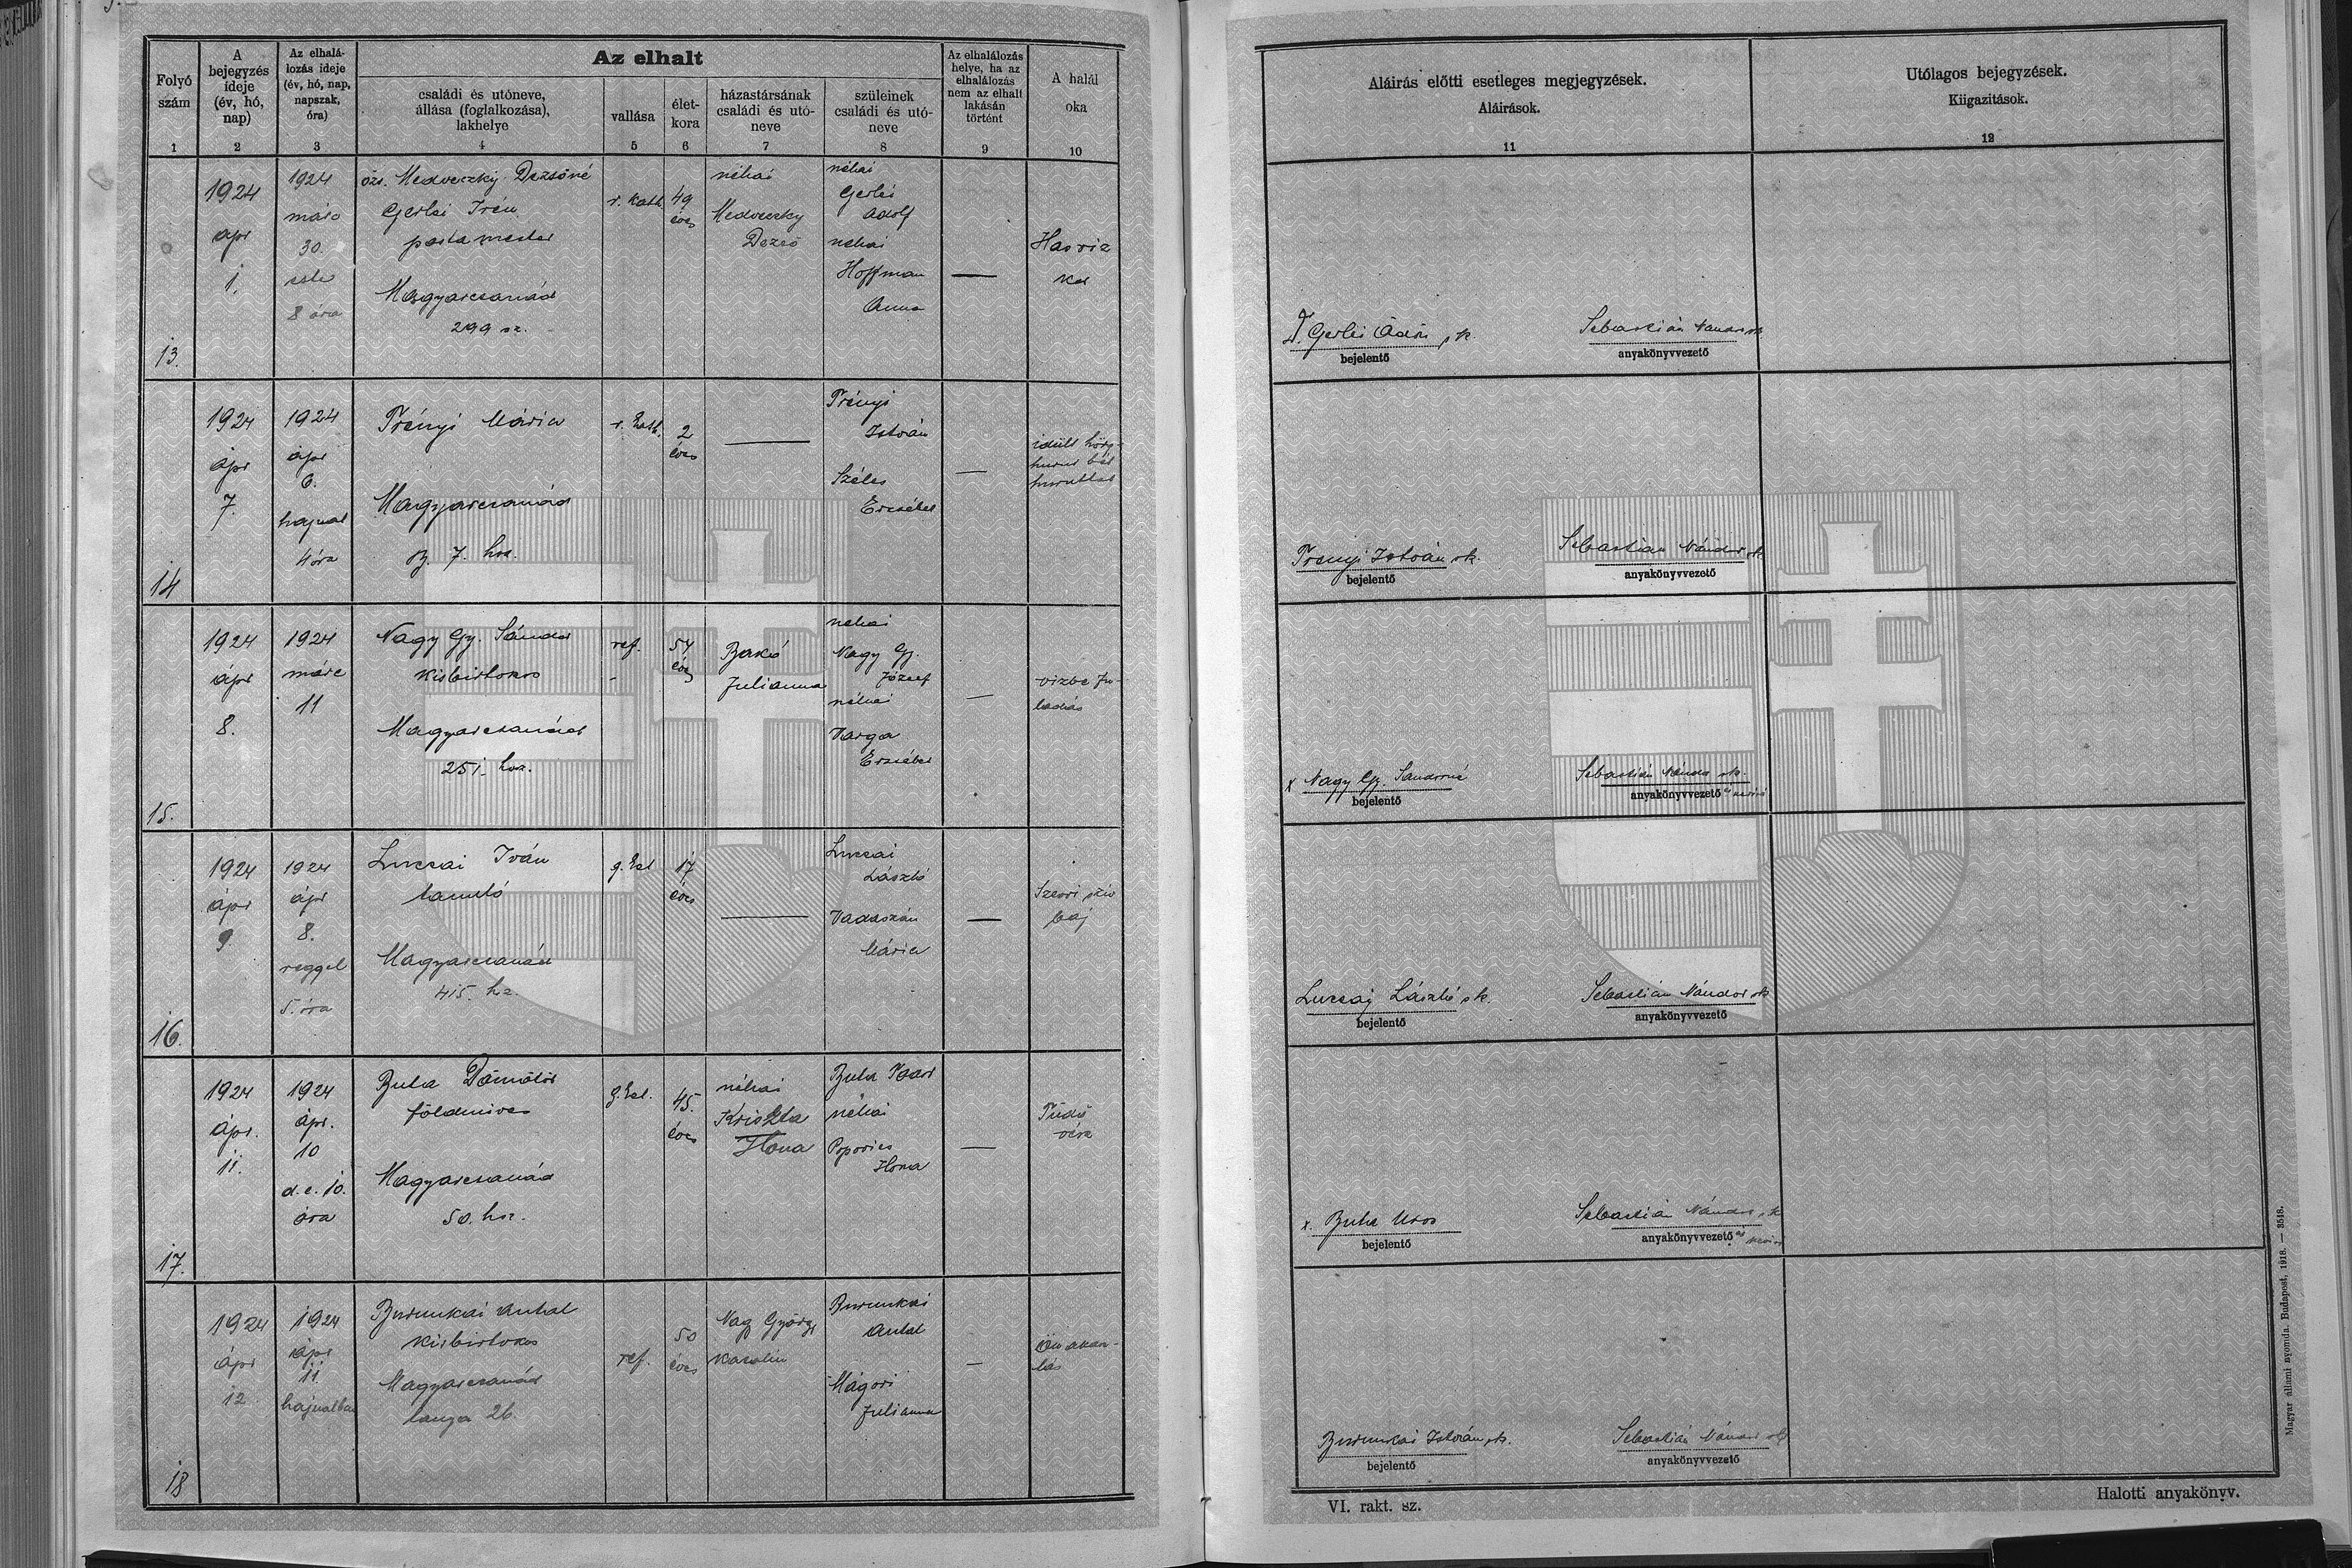 Folyó
szám
1
A
bejegyzés
ideje
(év, hó,
nap)
2
Az elhalá-
lozás ideje
(év, hó, nap,
napszak,
óra)
3
Az elhalt
családi és utóneve,
állása (foglalkozása),
lakhelye
4
vallása
5
élet-
kora
6
házastársának
családi és utó-
neve
7
szüleinek
családi és utó-
neve
8
Az elhalálozás
helye, ha az
elhalálozás
nem az elhalt
lakásán
történt
9
A halál
oka
10
Aláirás előtti esetleges megjegyzések.
Aláirások.
11
Utólagos bejegyzések.
Kiigazitások.
12
13.
1924
ápr
1.
1924
márc
30.
este
8 óra
özv. Medveczky Dezsőné
Gerlei Irén
postamester
Magyarcsanád
299 sz.
r. kath.
49
éves
néhai
Medveczky
Dezső
néhai
Gerlei
Adolf
néhai
Hoffman
Anna
—
Hasviz
kór
Gerlei Ödön sk.
bejelentő
Sebastián Nándor sk.
anyakönyvvezető
14
1924
ápr
7.
1924
ápr
6.
hajnal
4 óra
Trényi Mária
Magyarcsanád
Bj. 7. hsz.
r. kath.
2
éves
—
Trényi
István
Széles
Erzsébet
—
idült hörg-
hurut bél
huruttal
Trényi István sk.
bejelentő
Sebastián Nándor sk.
anyakönyvvezető
15.
1924
ápr
8.
1924
márc
11
Nagy Gy. Sándor
kisbirtokos
Magyarcsanád
251. hsz.
ref.
54
éves
Bakó
Julianna
néhai
Nagy Gy.
József
néhai
Varga
Erzsébet
—
vizbe fu-
ladás
x Nagy Gy. Sándorné
bejelentő
Sebastián Nándor sk.
anyakönyvvezető és névíró
16.
1924
ápr
9.
1924
ápr
8.
reggel
5 óra
Luczai Iván
tanuló
Magyarcsanád
415. hsz.
g. kel
17
éves
—
Luczai
László
Vadaszán
Mária
—
Szervi sziv
baj
Luczaj László sk.
bejelentő
Sebastián Nándor sk
anyakönyvvezető
17.
1924
ápr.
11.
1924
ápr.
10
d. e. 10.
óra
Buta Dömötör
földmives
Magyarcsanád
50. hsz.
g. kel.
45.
éves
néhai
Kriszta
Ilona
Buta
néhai
Popovics
Ilona
—
Tüdő
vész
x. Buta Uros
bejelentő
Sebastián Nándor sk
anyakönyvvezető és névíró
18
1924
ápr
12
1924
ápr
11.
hajnalban
Burunkai Antal
kisbirtokos
Magyarcsanád
tanya 26.
ref.
50
éves
Nagy György
Katalin
Burunkai
Antal
Mágori
Julianna
—
Önakasz-
tás
Burunkai István sk.
bejelentő
Sebastián Nándor sk
anyakönyvvezető
VI. rakt. sz.
Halotti anyakönyv.
Magyar állami nyomda. Budapest, 1918. — 3518.